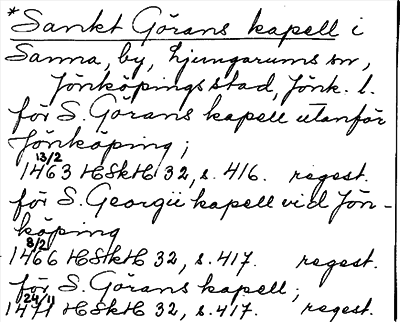 *Sankt Görans kapell i
Sanna, by, Ljungarums sn,
Jönköpings stad, Jönk. l.
för S. Görans kapell utanför
Jönköping;
13/2
1463 HSkH 32, s. 416. regest.
för S. Georgii kapell vid Jön-
köping
8/2
1466 HSkH 32, s. 417. regest.
för S. Görans kapell;
24/11
1471 HSkH 32, s. 417. regest.